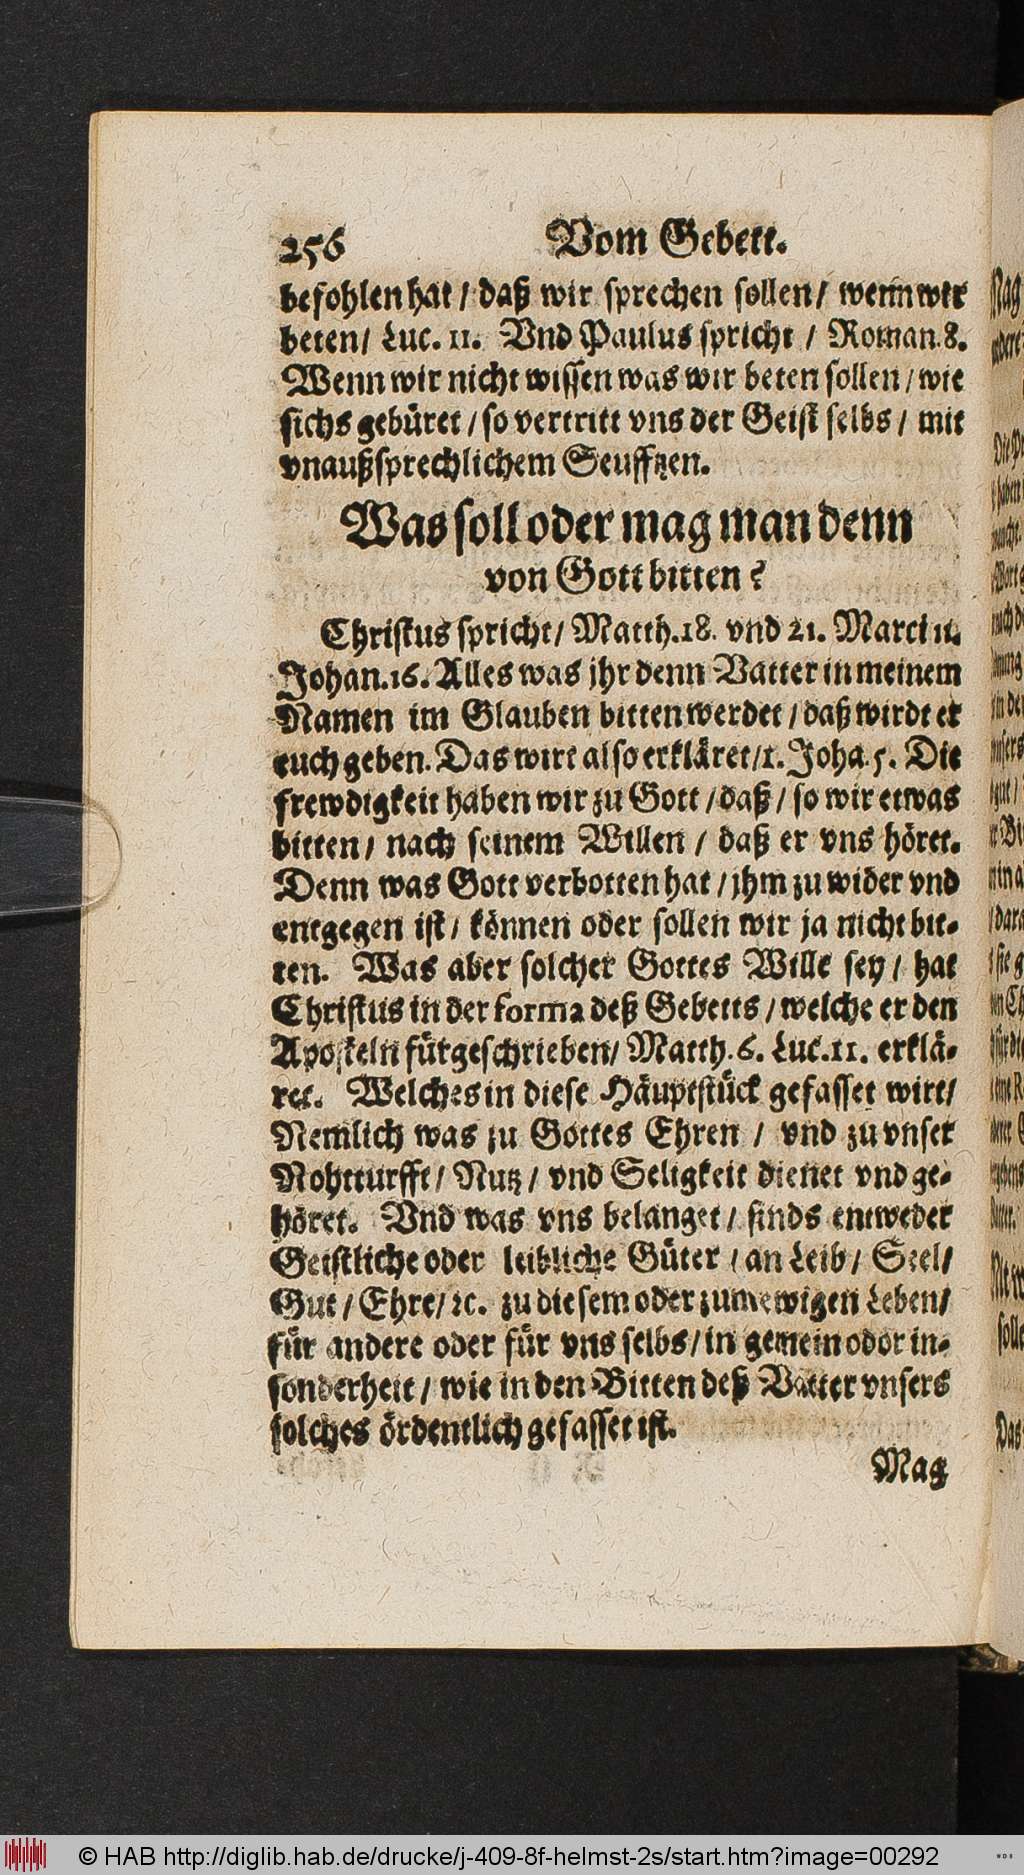 256 Vom Gebett.
befohlen hat / daß wir sprechen sollen / wenn wir
beten / Luc. 11. Vnd Paulus spricht / Roman. 8.
Wenn wir nicht wissen was wir beten sollen / wie
sichs gebüret / so vertritt vns der Geist selbs / mit
vnaußsprechlichem Seufftzen.
Was soll oder mag man denn
von Gott bitten?
Christus spricht / Matth. 18. vnd 21. Marci 11.
Johan. 16. Alles was jhr denn Vatter in meinem
Namen im Glauben bitten werdet / daß wirdt er
euch geben. Das wirt also erkläret / 1. Joha. 5. Die
frewdigkeit haben wir zu Gott / daß / so wir etwas
bitten / nach seinem Willen / daß er vns höret.
Denn was Gott verbotten hat / jhm zu wider vnd
entgegen ist / können oder sollen wir ja nicht bit-
ten. Was aber solcher Gottes Wille sey / hat
Christus in der forma deß Gebetts / welche er den
Aposteln fürgeschrieben / Matth. 6. Luc. 11. erklä-
ret. Welches in diese Häuptstück gefasset wirt /
Nemlich was zu Gottes Ehren / vnd zu vnser
Nohtturfft / Nutz / vnd Seligkeit dienet vnd ge-
höret. Vnd was vns belanget / sinds entweder
Geistliche oder leibliche Güter / an Leib / Seel /
Gut / Ehre / ꝛc. zu diesem oder zum ewigen Leben /
für andere oder für vns selbs / in gemein odor in-
sonderheit / wie in den Bitten deß Vatter vnsers
solches ördentlich gefasset ist.
Mag
© HAB http://diglib.hab.de/drucke/j-409-8f-helmst-2s/start.htm?image=00292